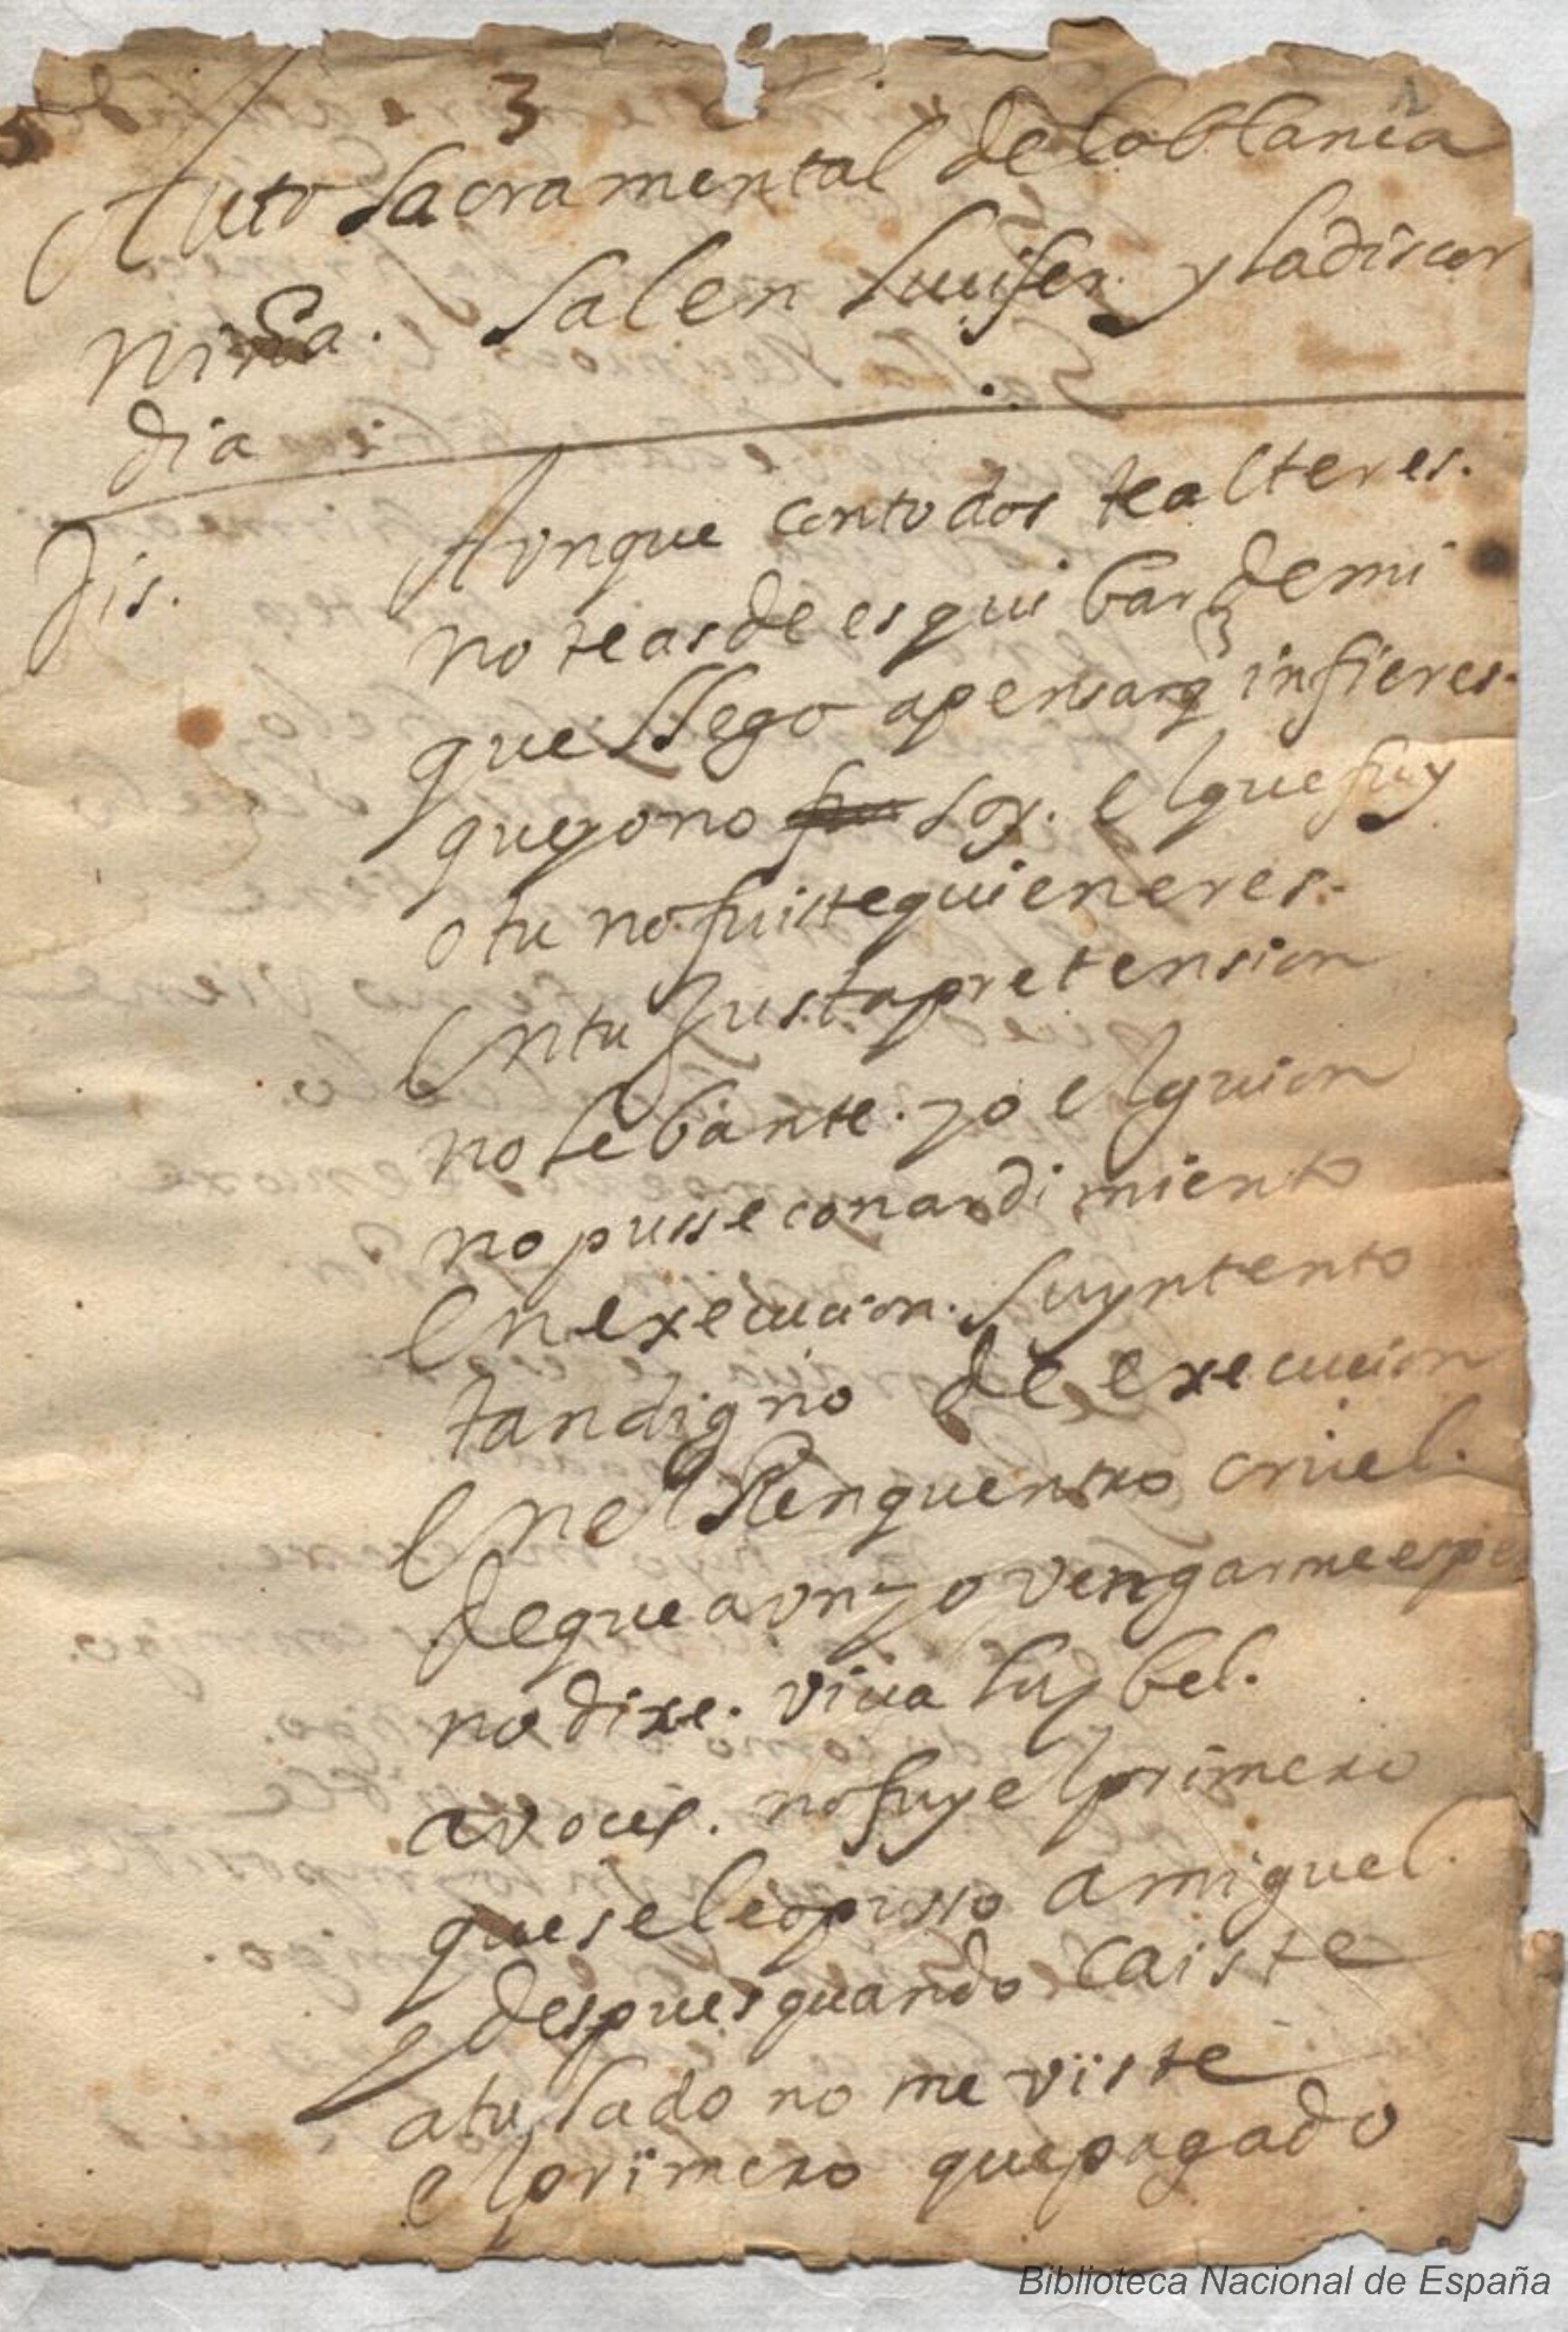 3
Auto Sacramental de la blanca
niña. Salen Lucifer. y ladiscor
dia
Dis. Aunque contodos tealteres.
no teasde esquibar demi
que llego apensar q̃ infieres.
queyono soy. elquefuy
otu no fuistequieneres.
Entu Justapretension
nolebante. yo elguion
nopusse conardimiento
Enexecucion. suyntento
tandigno de execucion
Enel Renquentro cruel.
dequeaun yo vengarmeespe
nodixe. viua luzbel.
avoces. nofuyelprimero
queseleopusso amiguel.
ydespuesquando caiste
atulado no me viste
elprimero quepagado
Biblioteca Nacional de España